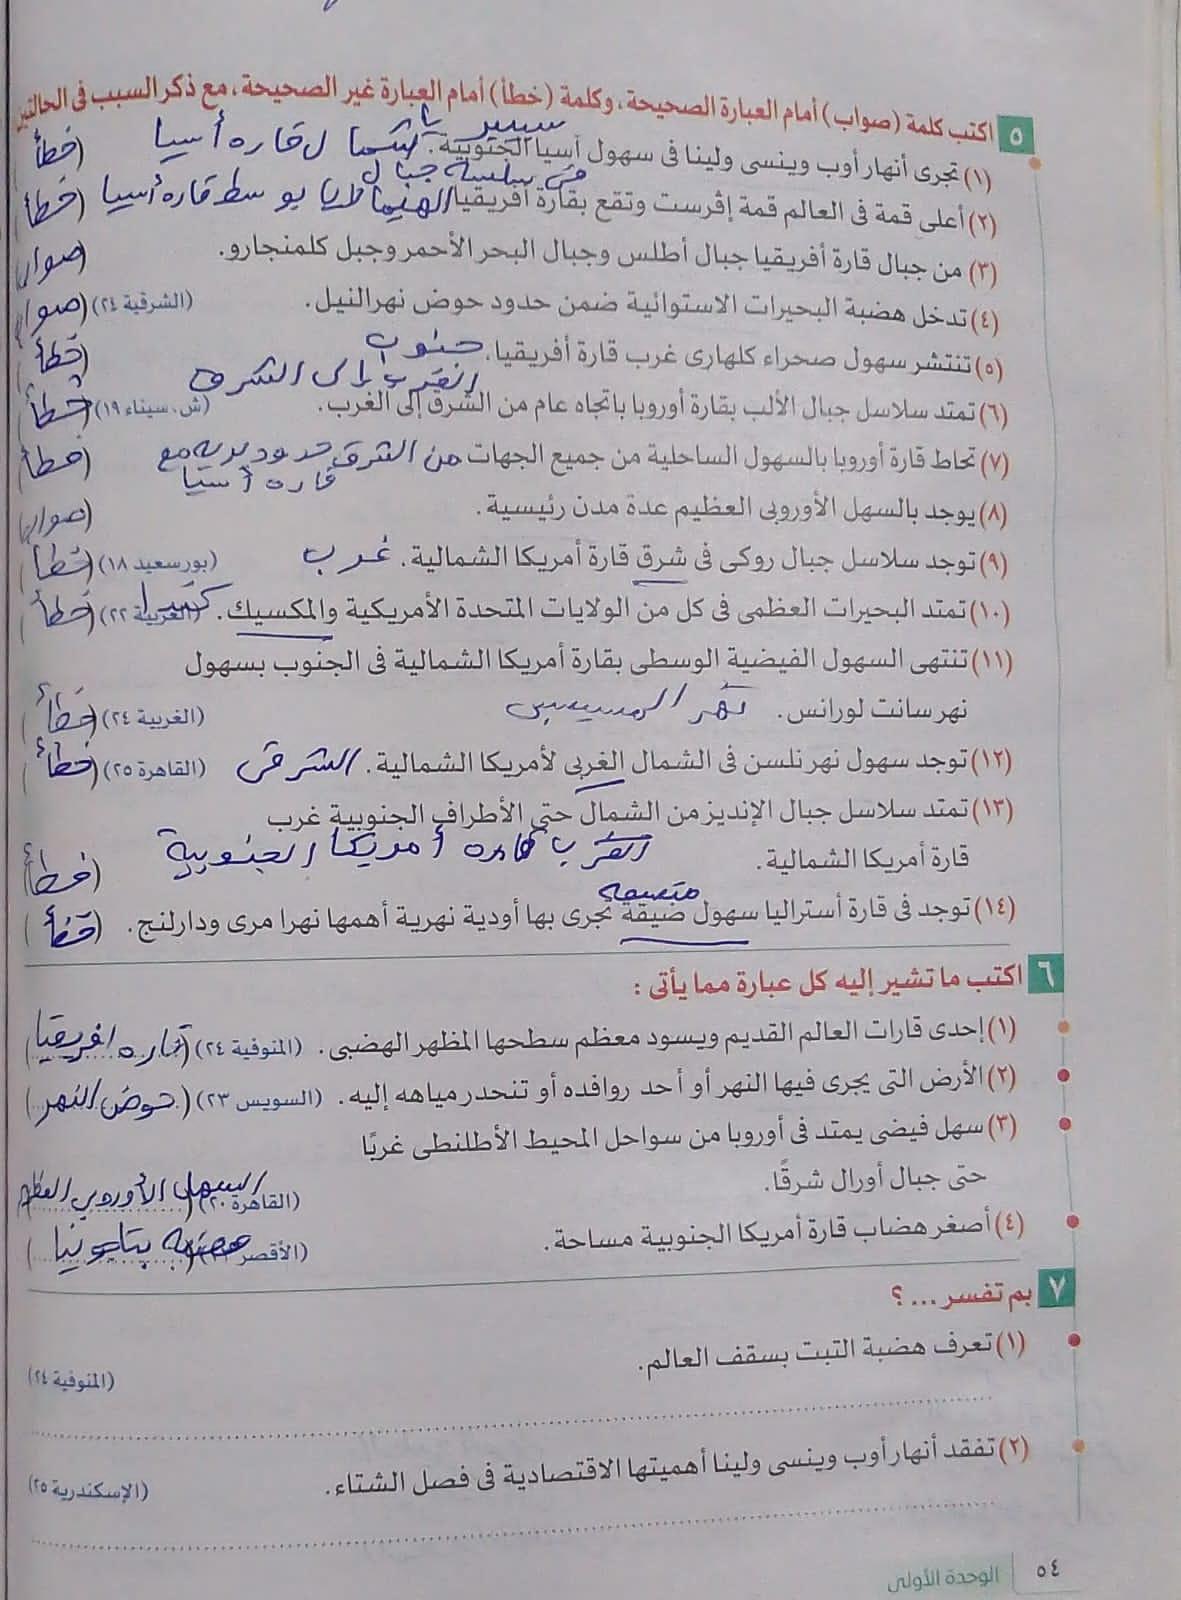 ٥ اكتب كلمة (صواب) أمام العبارة الصحيحة، وكلمة (خطأ) أمام العبارة غير الصحيحة، مع ذكر السبب فى الحالتين
سيبيريا شمال قاره أسيا
(١) تجرى أنهار أوب وينسى ولينا فى سهول آسيا الجنوبية. (خطأ)
فى سلسلة جبال
الهيمالايا بوسط قاره أسيا
(٢) أعلى قمة فى العالم قمة إفرست وتقع بقارة أفريقيا (خطأ)
(٣) من جبال قارة أفريقيا جبال أطلس وجبال البحر الأحمر وجبل كلمنجارو. (صواب)
(٤) تدخل هضبة البحيرات الاستوائية ضمن حدود حوض نهر النيل. (الشرقية ٢٤) (صواب)
جنوب
(٥) تنتشر سهول صحراء كلهارى غرب قارة أفريقيا. (خطأ)
الغرب إلى الشرق
(٦) تمتد سلاسل جبال الألب بقارة أوروبا باتجاه عام من الشرق إلى الغرب. (ش. سيناء ١٩) (خطأ)
(٧) تحاط قارة أوروبا بالسهول الساحلية من جميع الجهات من الشرق حدود بريه مع (خطأ)
قاره أسيا
(٨) يوجد بالسهل الأوروبى العظيم عدة مدن رئيسية. (صواب)
(٩) توجد سلاسل جبال روكى فى شرق قارة أمريكا الشمالية. غرب (بورسعيد ١٨) (خطأ)
كندا
(١٠) تمتد البحيرات العظمى فى كل من الولايات المتحدة الأمريكية والمكسيك. (الغربية ٢٢) (خطأ)
(١١) تنتهى السهول الفيضية الوسطى بقارة أمريكا الشمالية فى الجنوب بسهول
نهر سانت لورانس. نهر المسيسبى (الغربية ٢٤) (خطأ)
(١٢) توجد سهول نهر نلسن فى الشمال الغربى لأمريكا الشمالية. الشرقى (القاهرة ٢٥) (خطأ)
(١٣) تمتد سلاسل جبال الإنديز من الشمال حتى الأطراف الجنوبية غرب
قارة أمريكا الشمالية. الغرب قاره أمريكا الجنوبية (خطأ)
متسعه
(١٤) توجد فى قارة أستراليا سهول ضيقة تجرى بها أودية نهرية أهمها نهرا مرى ودارلنج. (خطأ)
٦ اكتب ما تشير إليه كل عبارة مما يأتى :
(١) إحدى قارات العالم القديم ويسود معظم سطحها المظهر الهضبى. (المنوفية ٢٤) (قاره افريقيا)
(٢) الأرض التى يجرى فيها النهر أو أحد روافده أو تنحدر مياهه إليه. (السويس ٢٣) (حوض النهر)
(٣) سهل فيضى يمتد فى أوروبا من سواحل المحيط الأطلنطى غربًا
حتى جبال أورال شرقًا. (القاهرة ٢٠) (السهل الأوروبى العظيم
(٤) أصغر هضاب قارة أمريكا الجنوبية مساحة. (الأقصر (هضبه بتاجونيا)
٧ بم تفسر ... ؟
(١) تعرف هضبة التبت بسقف العالم. (المنوفية ٢٤)
(٢) تفقد أنهار أوب وينسى ولينا أهميتها الاقتصادية فى فصل الشتاء. (الإسكندرية ٢٥)
٥٤ الوحدة الأولى